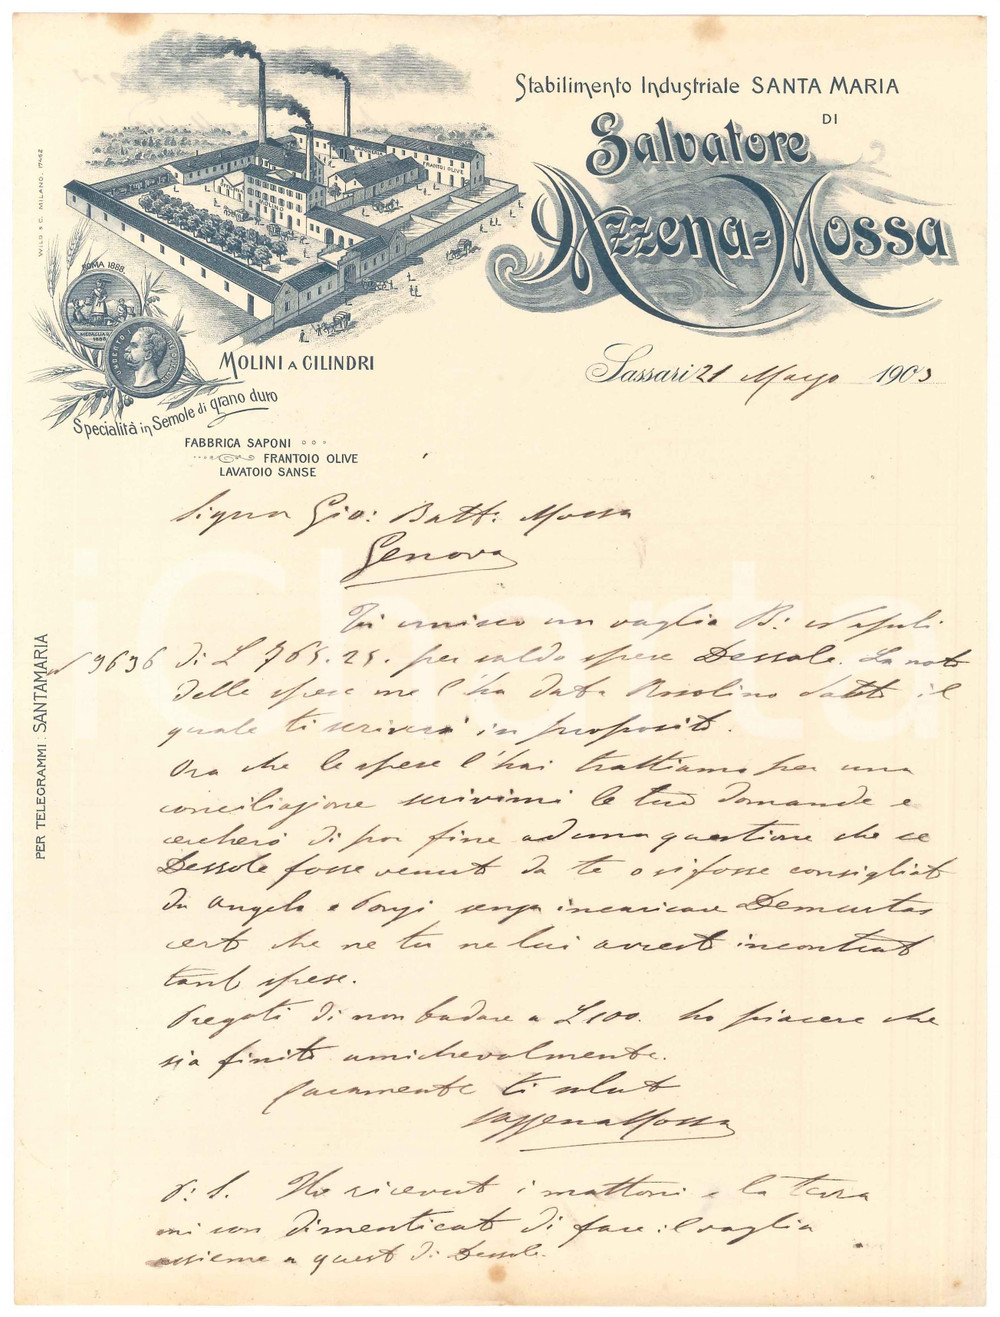 Stabilimento Industriale SANTA MARIA
DI
Salvatore
Azzena=Mossa
FRANTOI OLIVE
MOLINO
ROMA 1888
UMBERTO I
MOLINI A CILINDRI
Specialità in Semole di grano duro
FABBRICA SAPONI
FRANTOIO OLIVE
LAVATOIO SANSE
WILD & C. MILANO.
PER TELEGRAMMI: SANTAMARIA
Sassari 21 Marzo 1903
Signor Gio: Batt: Mossa
Genova
Ti unisco un vaglia B: Napoli
N 9636 di L 765.25. per saldo spese Dessole. La nota
delle spese me l'ha data Ussolino il
quale ti scriverà in proposito.
Ora che le spese l'hai trattiamo per una
conciliazione scrivimi le tue domande e
cercherò di por fine ad una questione che se
Dessole fosse venuto da te o si fosse consigliato
da Angelo e senza incaricare Demurtas
certo che ne tu ne lui avresti incontrato
tante spese.
Pregoti di non badare a L 100. ho piacere che
sia finito amichevolmente.
ti saluto
SAzzenaMossa
P. S. Ho ricevuto i mattoni e la terra
mi son dimenticato di fare il vaglia
assieme a questo di Dessole.
iCharta